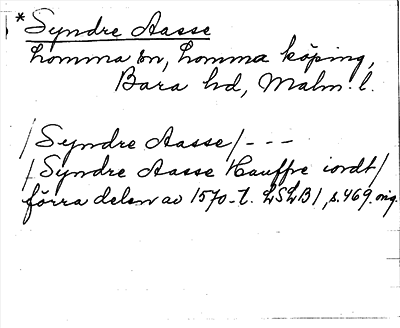 * Syndre Aasse
Lomma sn, Lomma köping,
Bara hd, Malm. l.
/Syndre Aasse/ - - -
/Syndre Aasse Hauffve iordt/
förra delen av 1570-t. LSLB1, s. 469. orig.